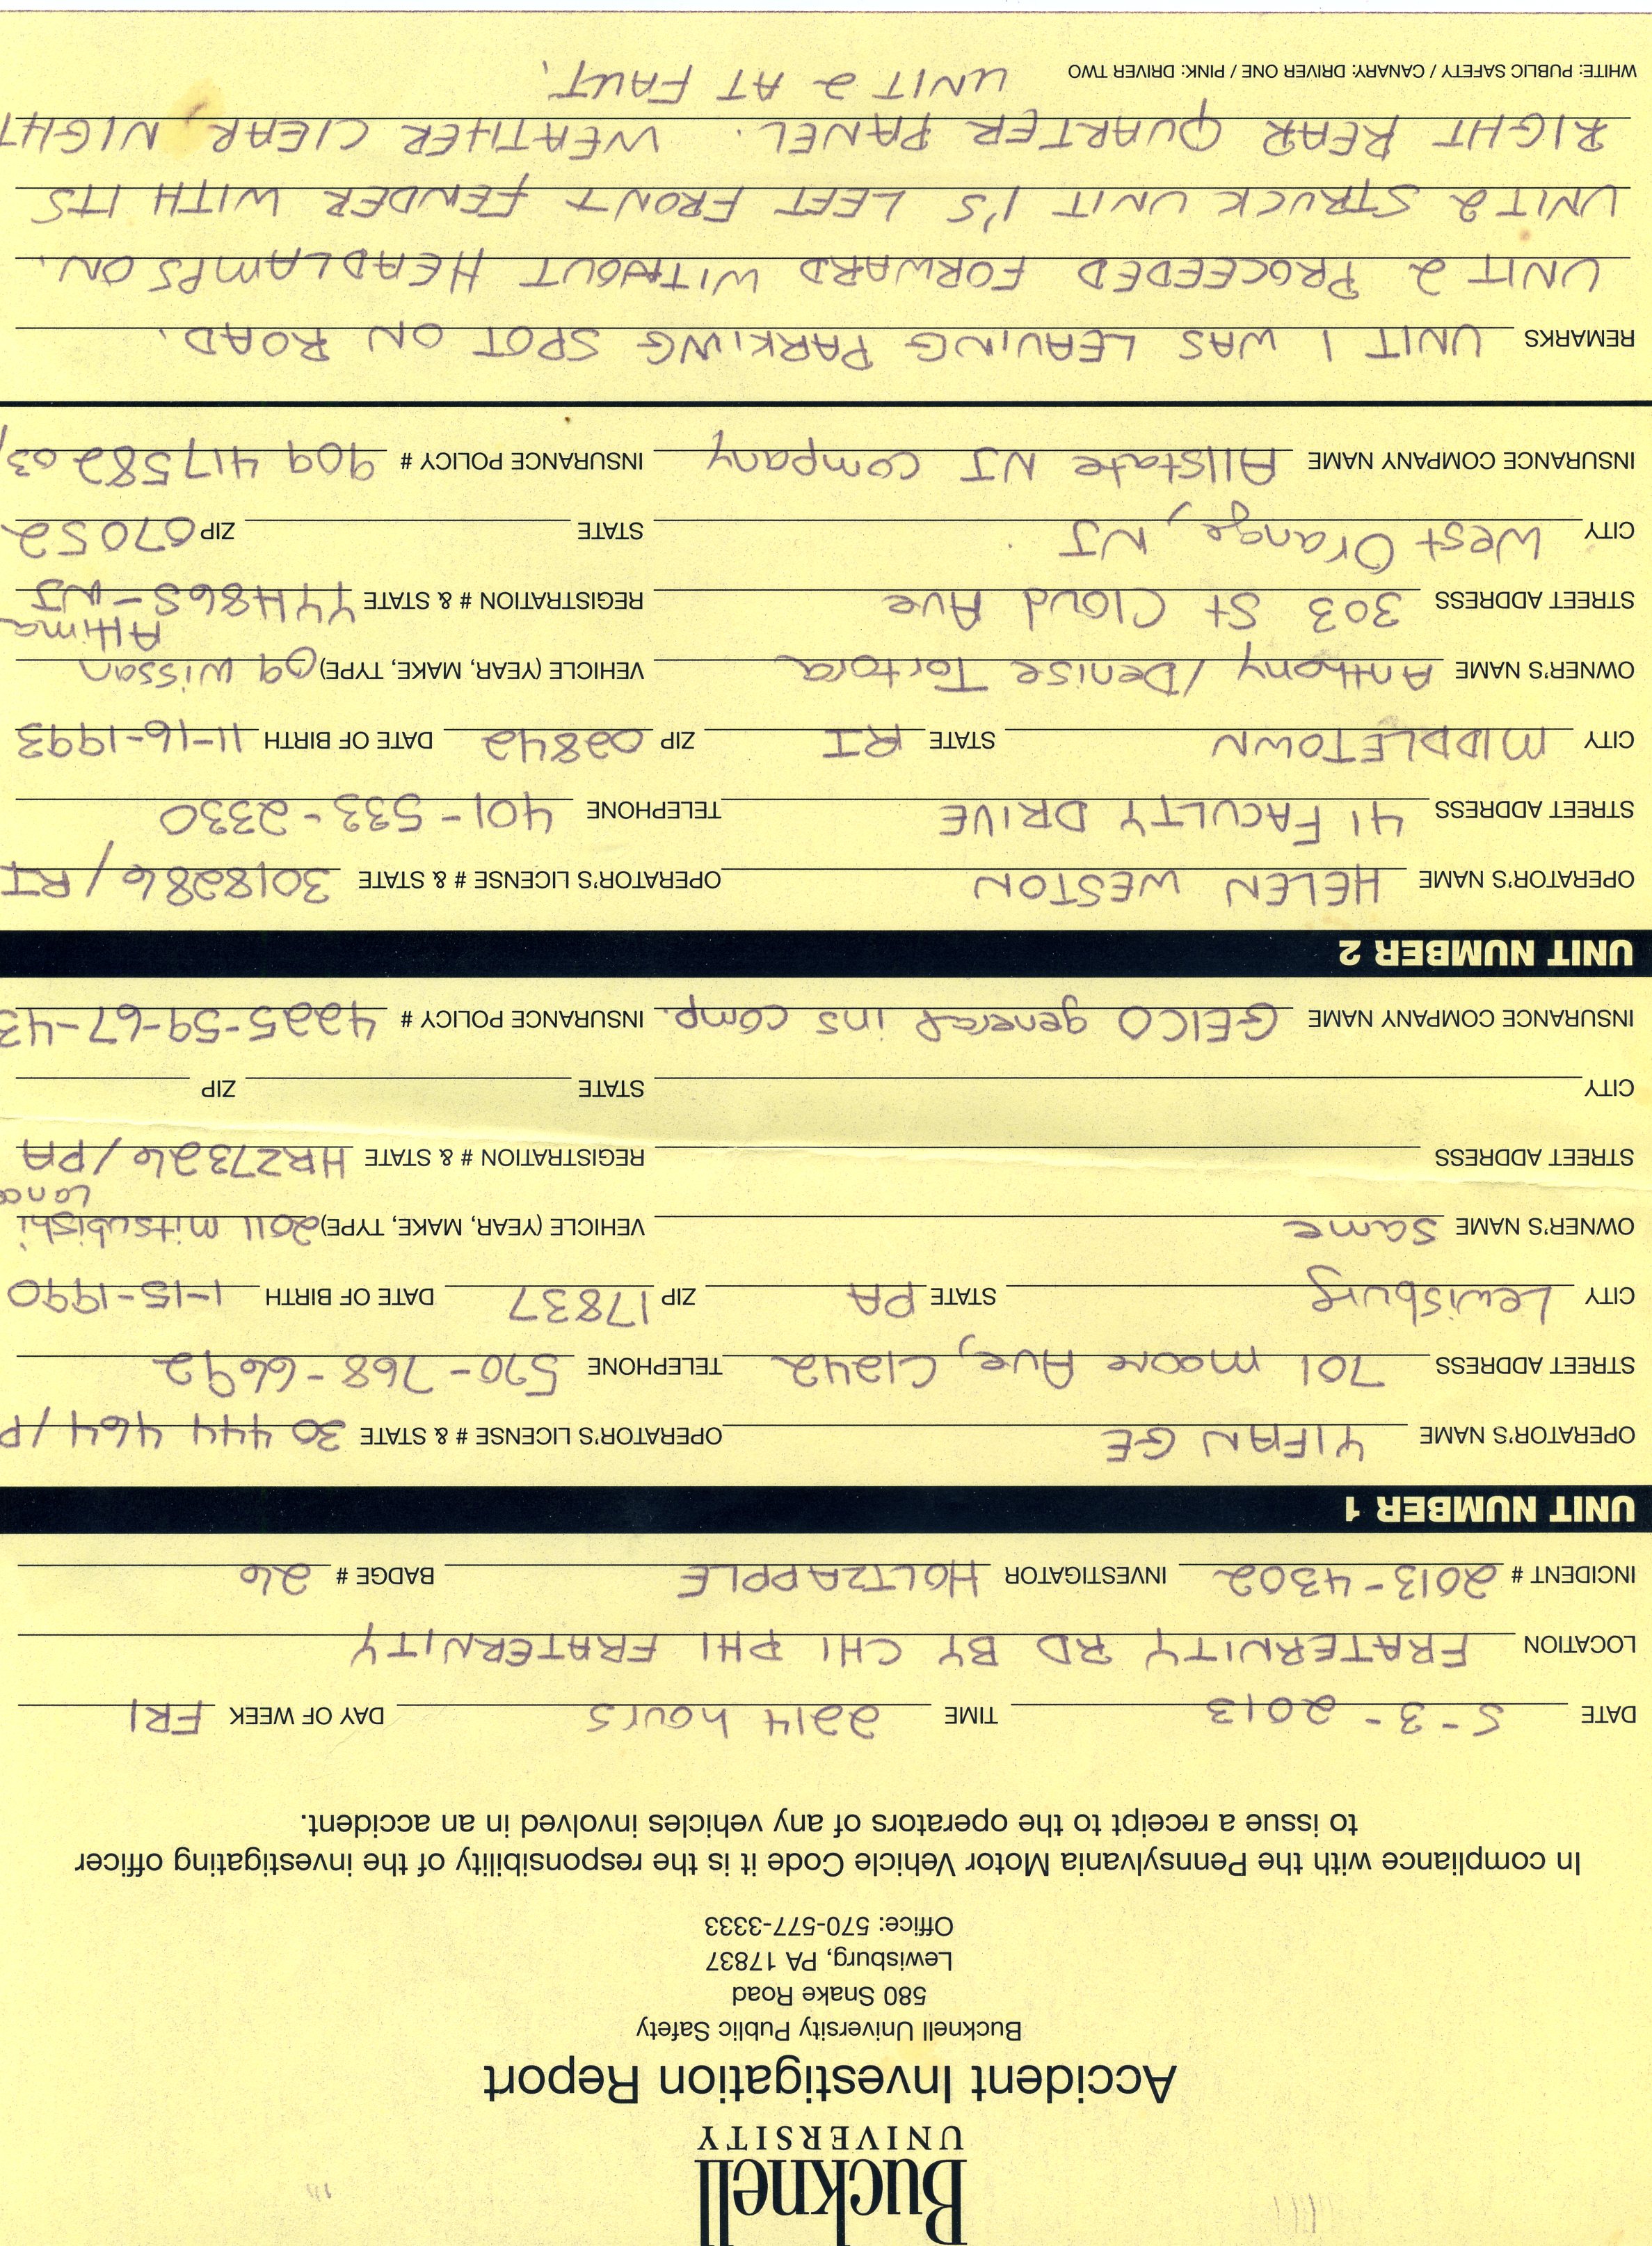 Bucknell
UNIVERSITY
Accident Investigation Report
Bucknell University Public Safety
580 Snake Road
Lewisburg, PA 17837
Office: 570-577-3333
In compliance with the Pennsylvania Motor Vehicle Code it is the responsibility of the investigating officer
to issue a receipt to the operators of any vehicles involved in an accident.
DATE 5-3-2013 TIME 2214 hours DAY OF WEEK FRI
LOCATION FRATERNITY RD BY CHI PHI FRATERNITY
INCIDENT # 2013-4302 INVESTIGATOR HOLTZAPPLE BADGE # 26
UNIT NUMBER 1
OPERATOR'S NAME YIFAN GE OPERATOR'S LICENSE # & STATE 30 444 464/P
STREET ADDRESS 701 Moore Ave, C1242 TELEPHONE 570-768-6692
CITY Lewisburg STATE PA ZIP 17837 DATE OF BIRTH 1-15-1990
OWNER'S NAME same VEHICLE (YEAR, MAKE, TYPE) 2011 mitsubishi
Lance
STREET ADDRESS REGISTRATION # & STATE HRZ7326/PA
CITY STATE ZIP
INSURANCE COMPANY NAME GEICO general ins comp. INSURANCE POLICY # 4225-59-67-43
UNIT NUMBER 2
OPERATOR'S NAME HELEN WESTON OPERATOR'S LICENSE # & STATE 3018286/RI
STREET ADDRESS 41 FACULTY DRIVE TELEPHONE 401-533-2330
CITY MIDDLETOWN STATE RI ZIP 02842 DATE OF BIRTH 11-16-1993
OWNER'S NAME Anthony/Denise Tortora VEHICLE (YEAR, MAKE, TYPE) 09 Nissan
Altima
STREET ADDRESS 303 St Cloud Ave REGISTRATION # & STATE YYH86S-NJ
CITY West Orange, NJ STATE ZIP 07052
INSURANCE COMPANY NAME Allstate NJ company INSURANCE POLICY # 909 417582 03/
REMARKS UNIT 1 WAS LEAVING PARKING SPOT ON ROAD.
UNIT 2 PROCEEDED FORWARD WITHOUT HEADLAMPS ON.
UNIT 2 STRUCK UNIT 1'S LEFT FRONT FENDER WITH ITS
RIGHT REAR QUARTER PANEL. WEATHER CLEAR, NIGHT
UNIT 2 AT FAULT.
WHITE: PUBLIC SAFETY / CANARY: DRIVER ONE / PINK: DRIVER TWO